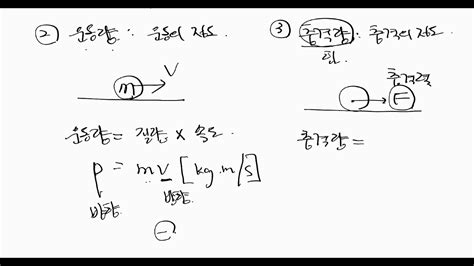 ② 운동량 : 운동의 정도
m
V
운동량 = 질량 × 속도.
p = mv [kg.m/s]
방향 방향
③ 충격량 : 충격의 정도
힘
충격력
F
충격량 =